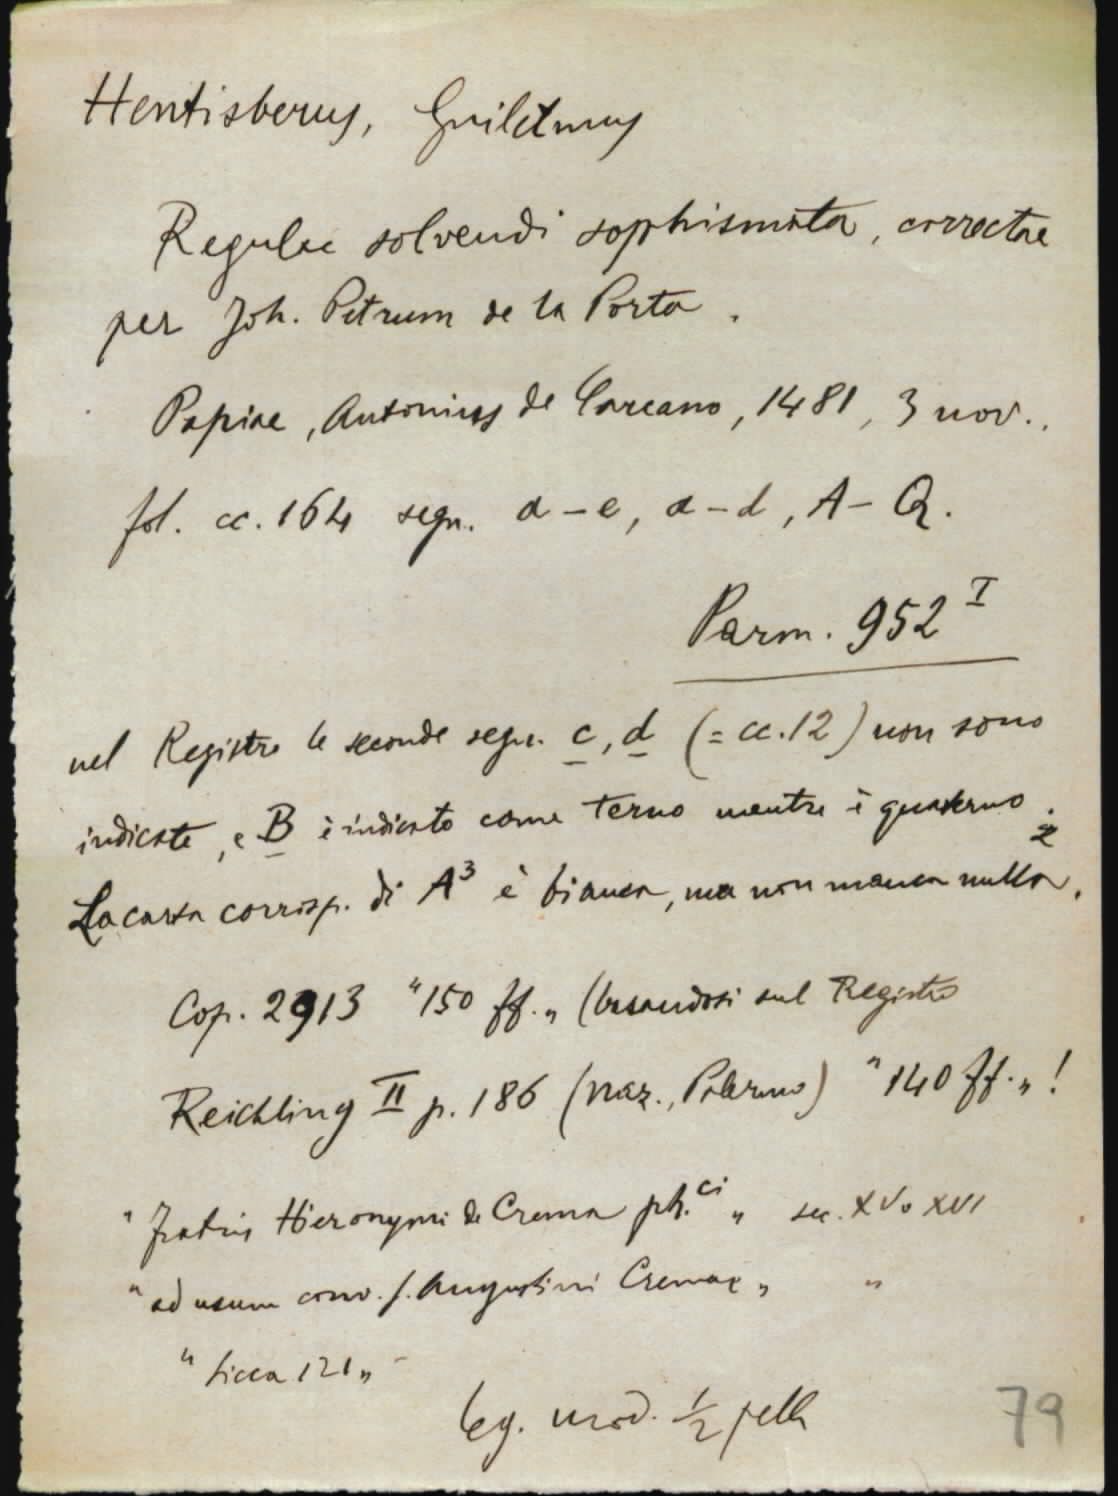 Hentisberus, Guilelmus
Regulae solvendi sophismata, correctae
per Joh. Petrum de la Porta.
Papiae, Antonius de Carcano, 1481, 3 nov.,
fol. cc. 164 segn. a-e, a-d, A-Q.
Parm. 952 I
nel Registro le seconde segn. c, d (= cc. 12) non sono
indicate, e B è indicato come terno mentre è quaderno.
La carta corrisp. di A3 è bianca, ma non manca nulla.
Cop. 2913 "150 ff." (basandosi sul Registro
Reichling II p. 186 (naz., Palermo) "140 ff."!
"Fratris Hieronymi de Crema ph.ci" sec. XV o XVI
"ad usum conv. s. Augustini Cremae" "
"Sicca 121"
leg. mod. 1/2 pelle
79